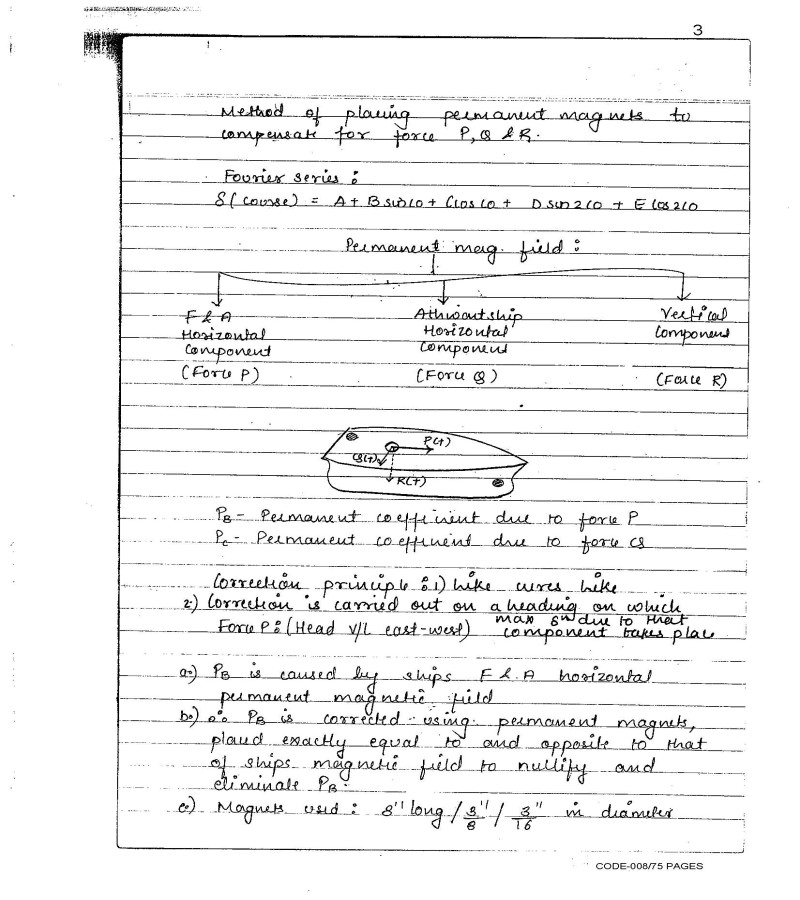 3
Method of placing permanent magnets to
compensate for force P, Q & R.
Fourier series :
δ(course) = A + B sin co + C cos co + D sin 2co + E cos 2co
Permanent mag. field :
F & A Athwartship Vertical
Horizontal Horizontal Component
Component Component
(Force P) (Force Q) (Force R)
P(+)
Q(+)
R(+)
PB - Permanent coefficient due to force P
Pc - Permanent coefficient due to force Q
Correction principle : 1) Like cures Like
2) Correction is carried out on a heading on which
max δn due to that
Force P : (Head v/l east-west) component takes place
a) PB is caused by ships F & A horizontal
permanent magnetic field
b) ∴ PB is corrected using permanent magnets,
placed exactly equal to and opposite to that
of ships magnetic field to nullify and
eliminate PB.
c) Magnets used : 8" long / 3/8" / 3/16" in diameter
CODE-008/75 PAGES